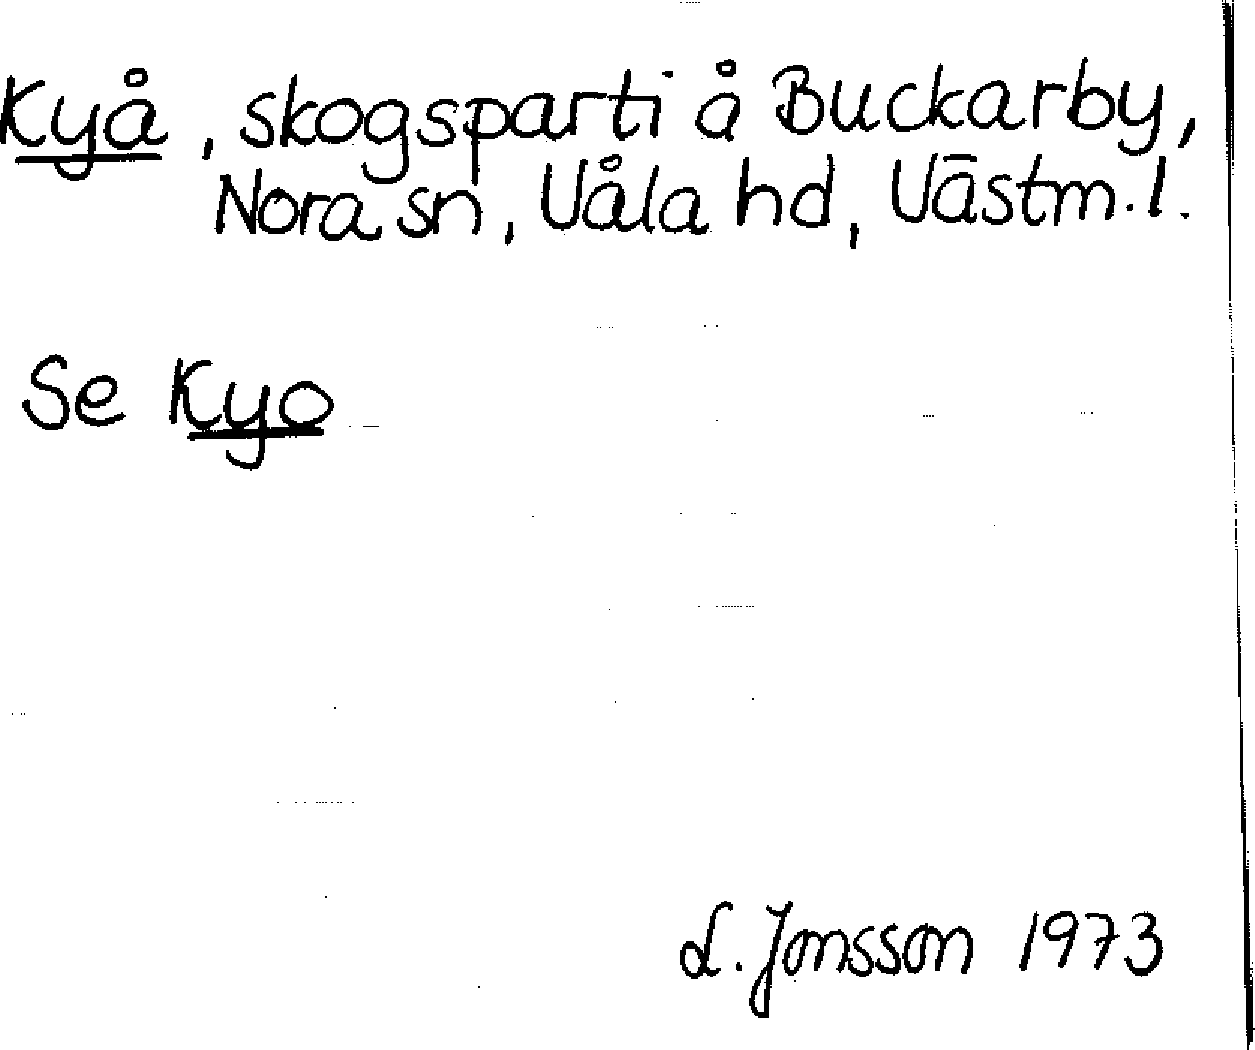 Kyå, skogsparti å Buckarby,
Nora sn, Våla hd, Västm. l.
Se Kyo
L. Jonsson 1973